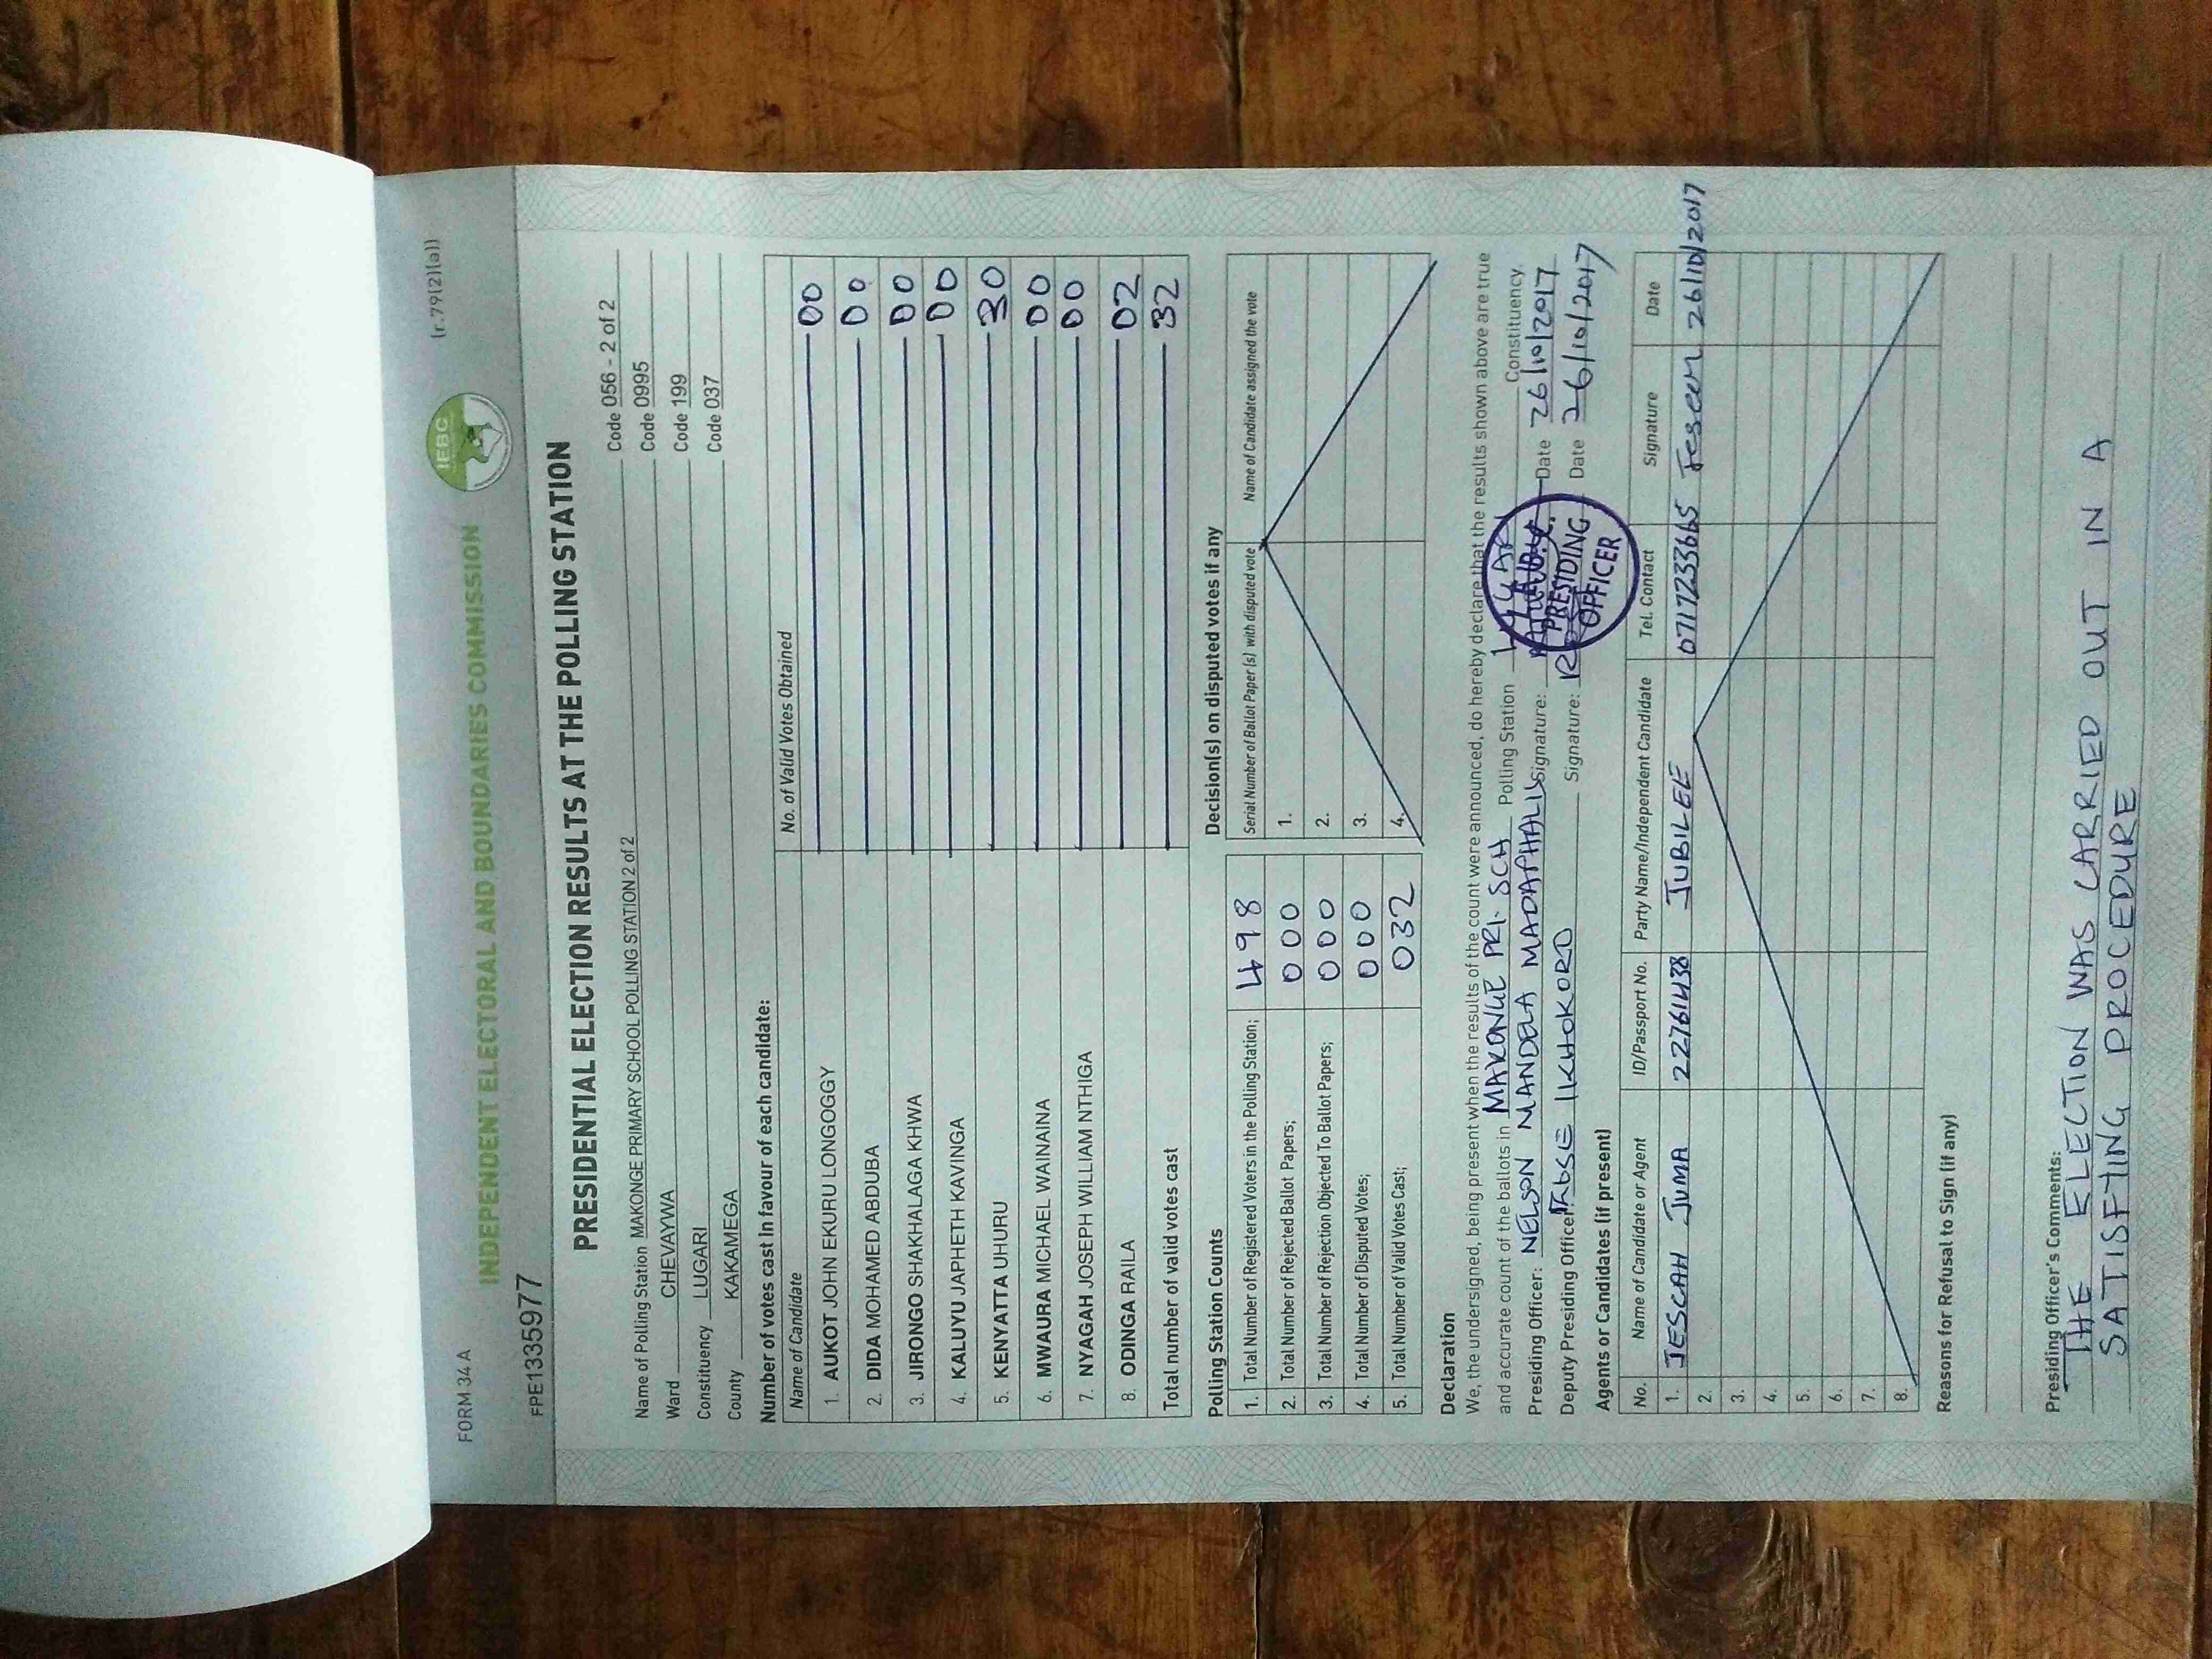 FORM 34 A
(r.79(2)(a))
IEBC
INDEPENDENT ELECTORAL AND BOUNDARIES COMMISSION
FPE1335977
PRESIDENTIAL ELECTION RESULTS AT THE POLLING STATION
Name of Polling Station MAKONGE PRIMARY SCHOOL POLLING STATION 2 of 2 Code 056 - 2 of 2
Ward CHEVAYWA Code 0995
Constituency LUGARI Code 199
County KAKAMEGA Code 037
Number of votes cast in favour of each candidate:
Name of Candidate No. of Valid Votes Obtained
1. AUKOT JOHN EKURU LONGOGGY 00
2. DIDA MOHAMED ABDUBA 00
3. JIRONGO SHAKHALAGA KHWA 00
4. KALUYU JAPHETH KAVINGA 00
5. KENYATTA UHURU 30
6. MWAURA MICHAEL WAINAINA 00
7. NYAGAH JOSEPH WILLIAM NTHIGA 00
8. ODINGA RAILA 02
Total number of valid votes cast 32
Polling Station Counts
1. Total Number of Registered Voters in the Polling Station; 498
2. Total Number of Rejected Ballot Papers; 000
3. Total Number of Rejection Objected To Ballot Papers; 000
4. Total Number of Disputed Votes; 000
5. Total Number of Valid Votes Cast; 032
Decision(s) on disputed votes if any
Serial Number of Ballot Paper(s) with disputed vote Name of Candidate assigned the vote
1.
2.
3.
4.
Declaration
We, the undersigned, being present when the results of the count were announced, do hereby declare that the results shown above are true
and accurate count of the ballots in MAKONGE PRI. SCH Polling Station LUGARI Constituency.
Presiding Officer: NELSON MANDELA Signature: Date 26/10/2017
Deputy Presiding Officer: Signature: Date 26/10/2017
PRESIDING
OFFICER
Agents or Candidates (if present)
No. Name of Candidate or Agent ID/Passport No. Party Name/Independent Candidate Tel. Contact Signature Date
1. JESCAH JUMA 22761438 JUBILEE 0717233665 26/10/2017
2.
3.
4.
5.
6.
7.
8.
Reasons for Refusal to Sign (if any)
Presiding Officer's Comments:
THE ELECTION WAS CARRIED OUT IN A
SATISFTING PROCEDURE